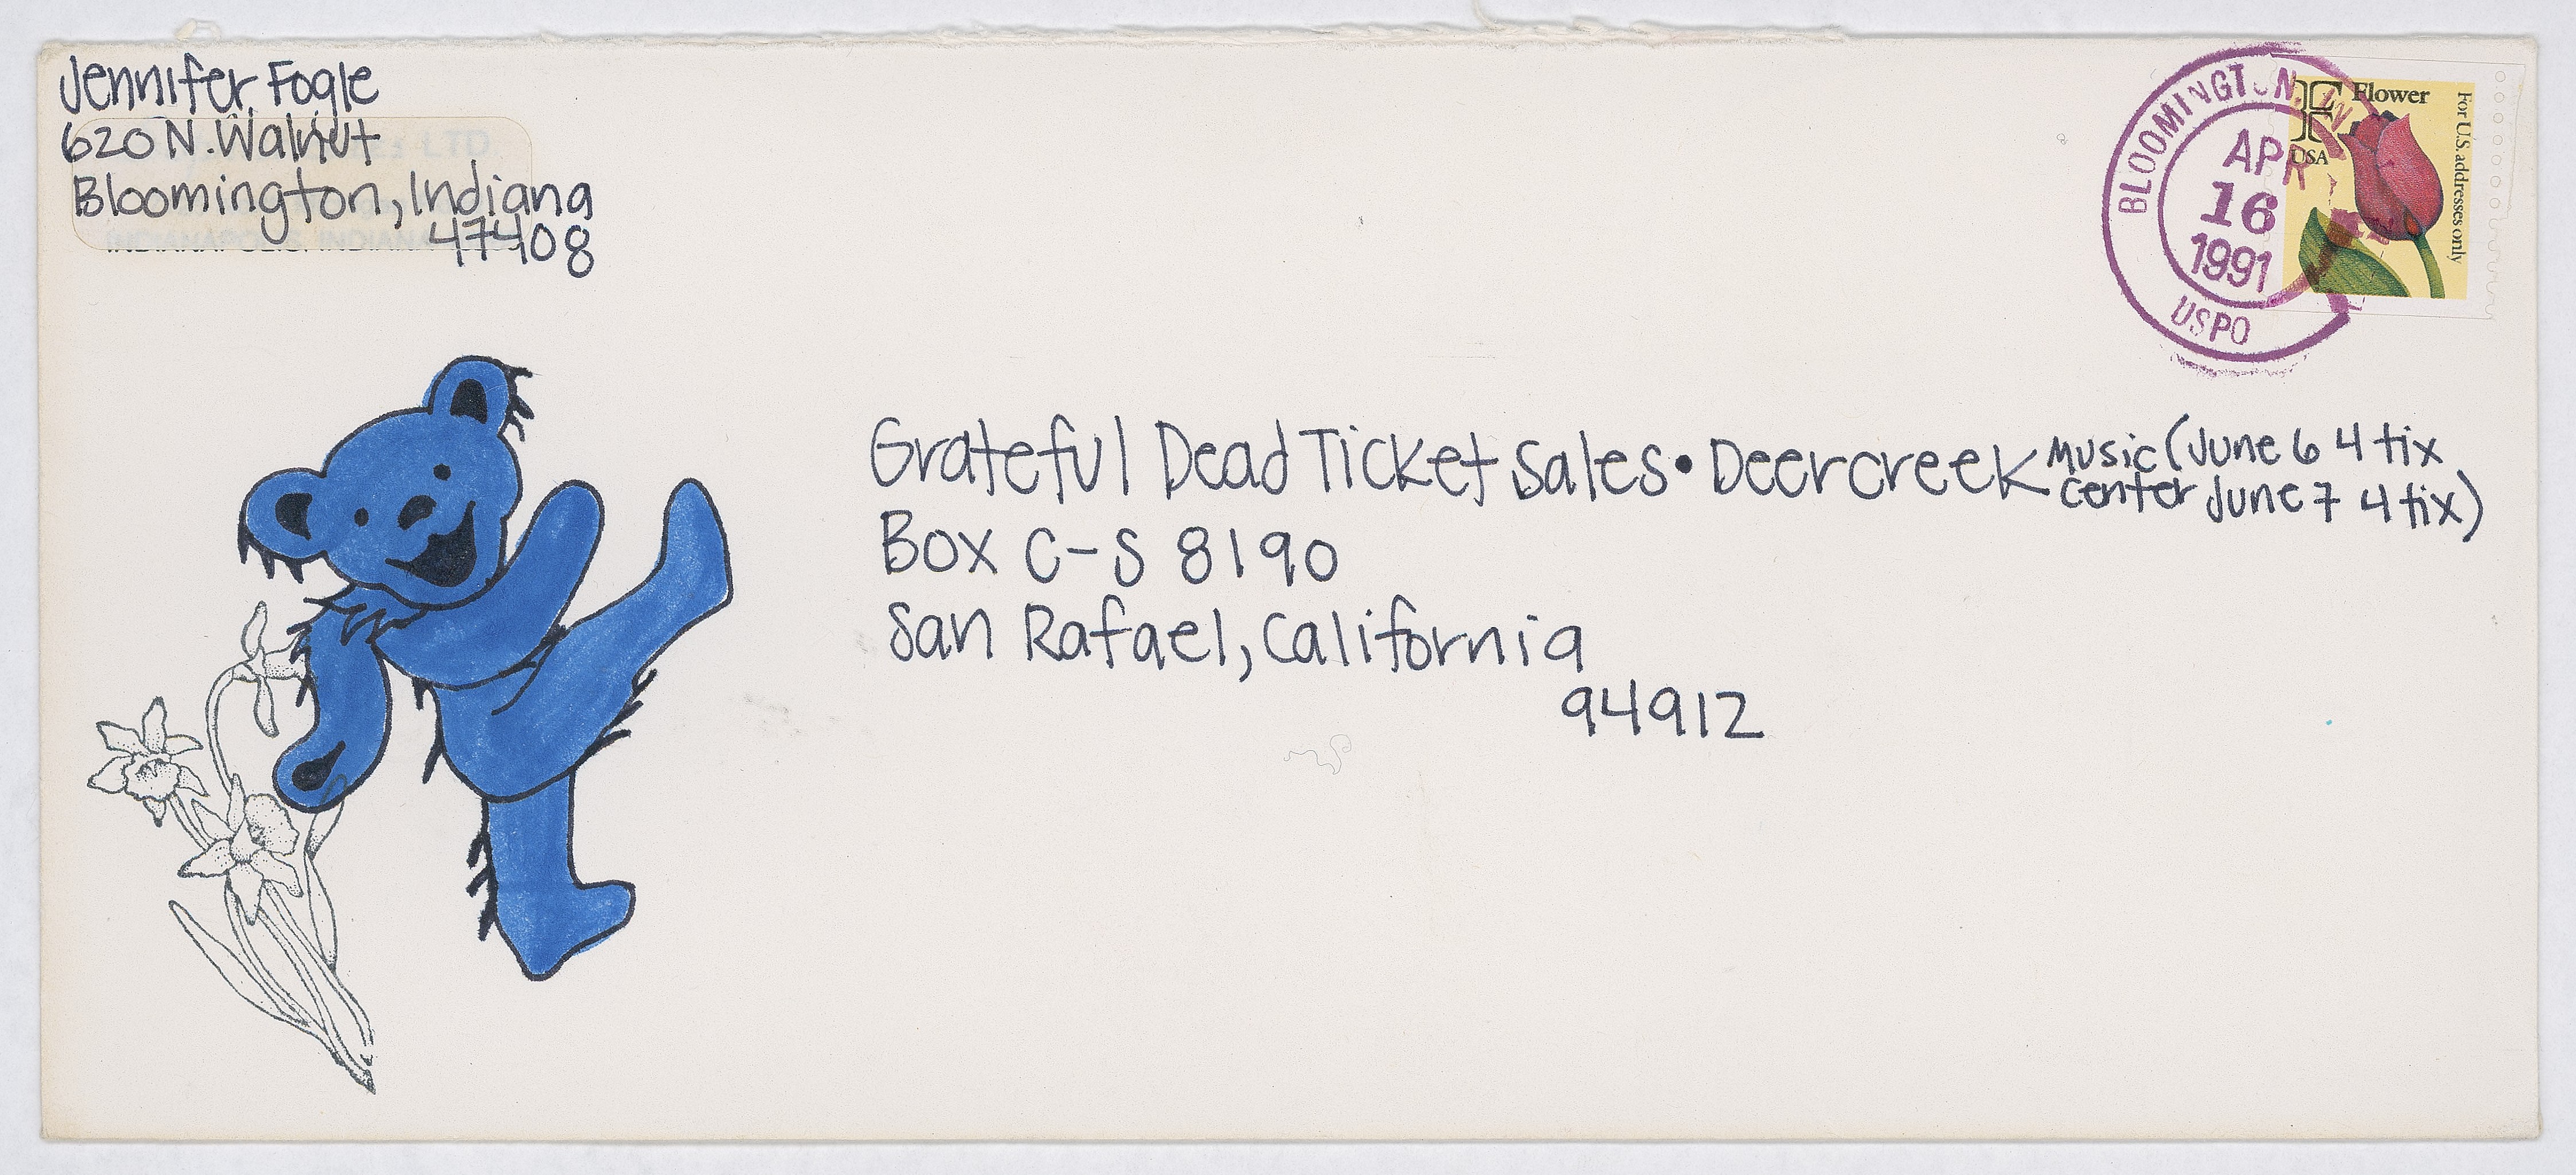 Jennifer Fogle
620 N. Walnut
Bloomington, Indiana
47408
LTD
INDIANAPOLIS, INDIANA
BLOOMINGTON, IN
APR
16
1991
USPO
Flower
USA
For U.S. addresses only
Grateful Dead Ticket Sales • Deercreek Music Center (June 6 4 tix
June 7 4 tix)
Box C-S 8190
San Rafael, California
94912